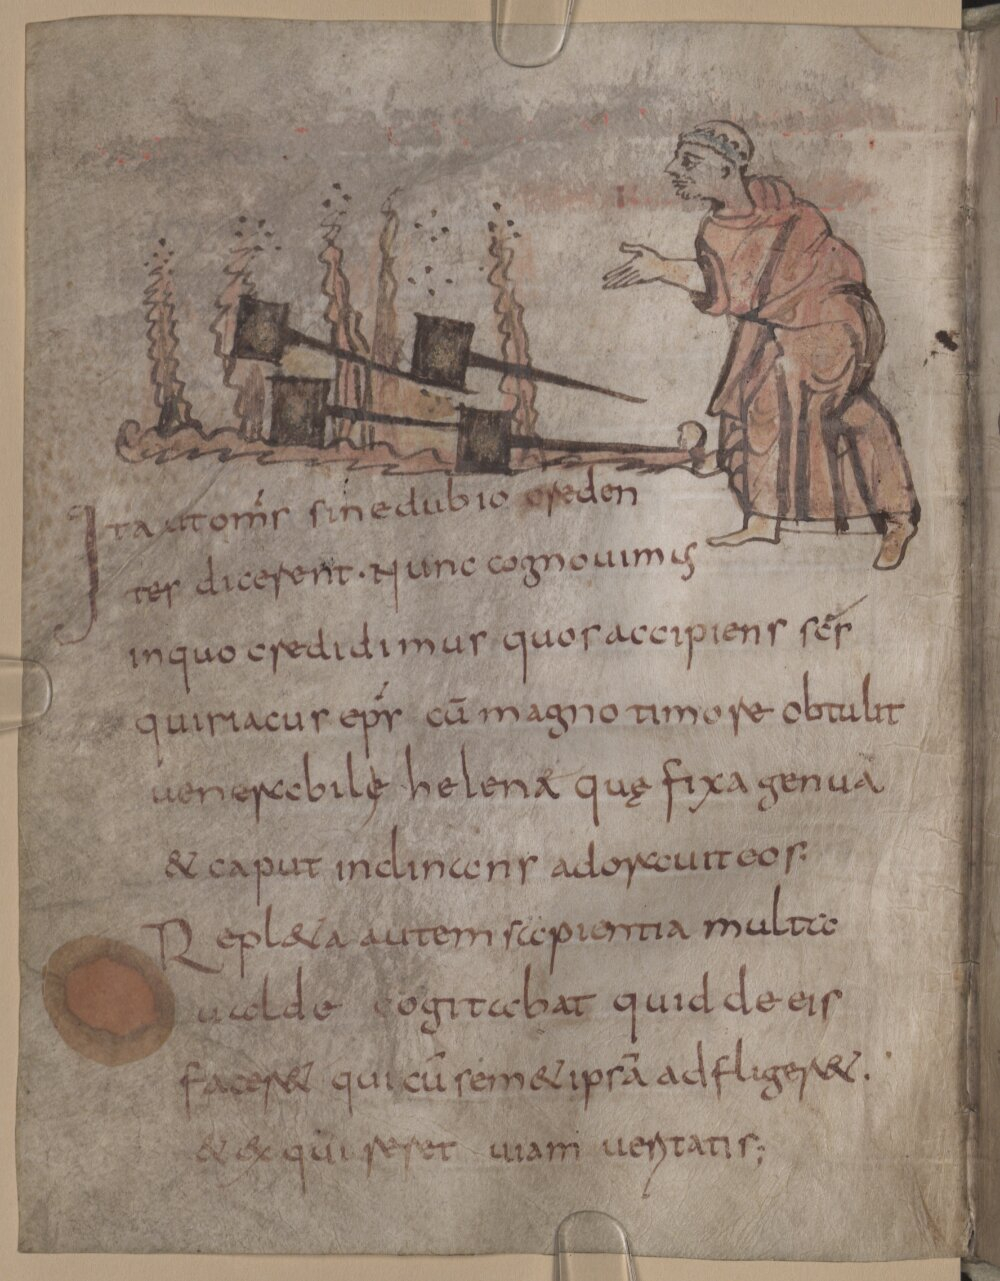 Ita utom̅s sine dubio creden
tes dicerent. Nunc cognovimus
in quo credidimus quos accipiens sc̅s
quiriacus ep̅s cu̅ magno timore obtulit
venerabilę helenae quę fixa genua
& caput inclinans adoravit eos.
Repl&a autem sapientia multa
valde cogitabat quid de eis
facer& qui cu̅ sem&ipsa̅ adfliger&.
& exquireret viam veritatis;